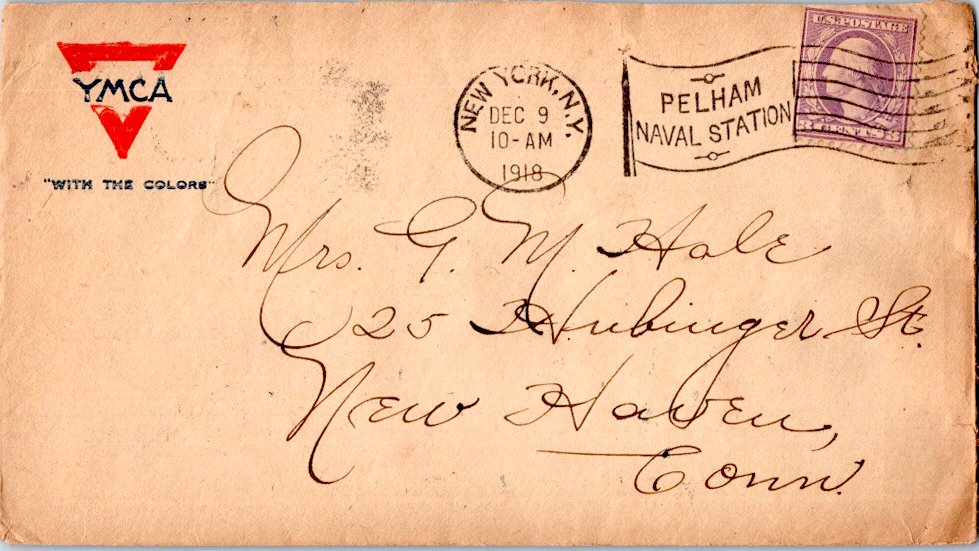 YMCA
"WITH THE COLORS"
NEW YORK, N.Y.
DEC 9
10-AM
1918
PELHAM
NAVAL STATION
U.S. POSTAGE
3 CENTS 3
Mrs. G. M. Hale
25 Hubinger St.
New Haven,
Conn.